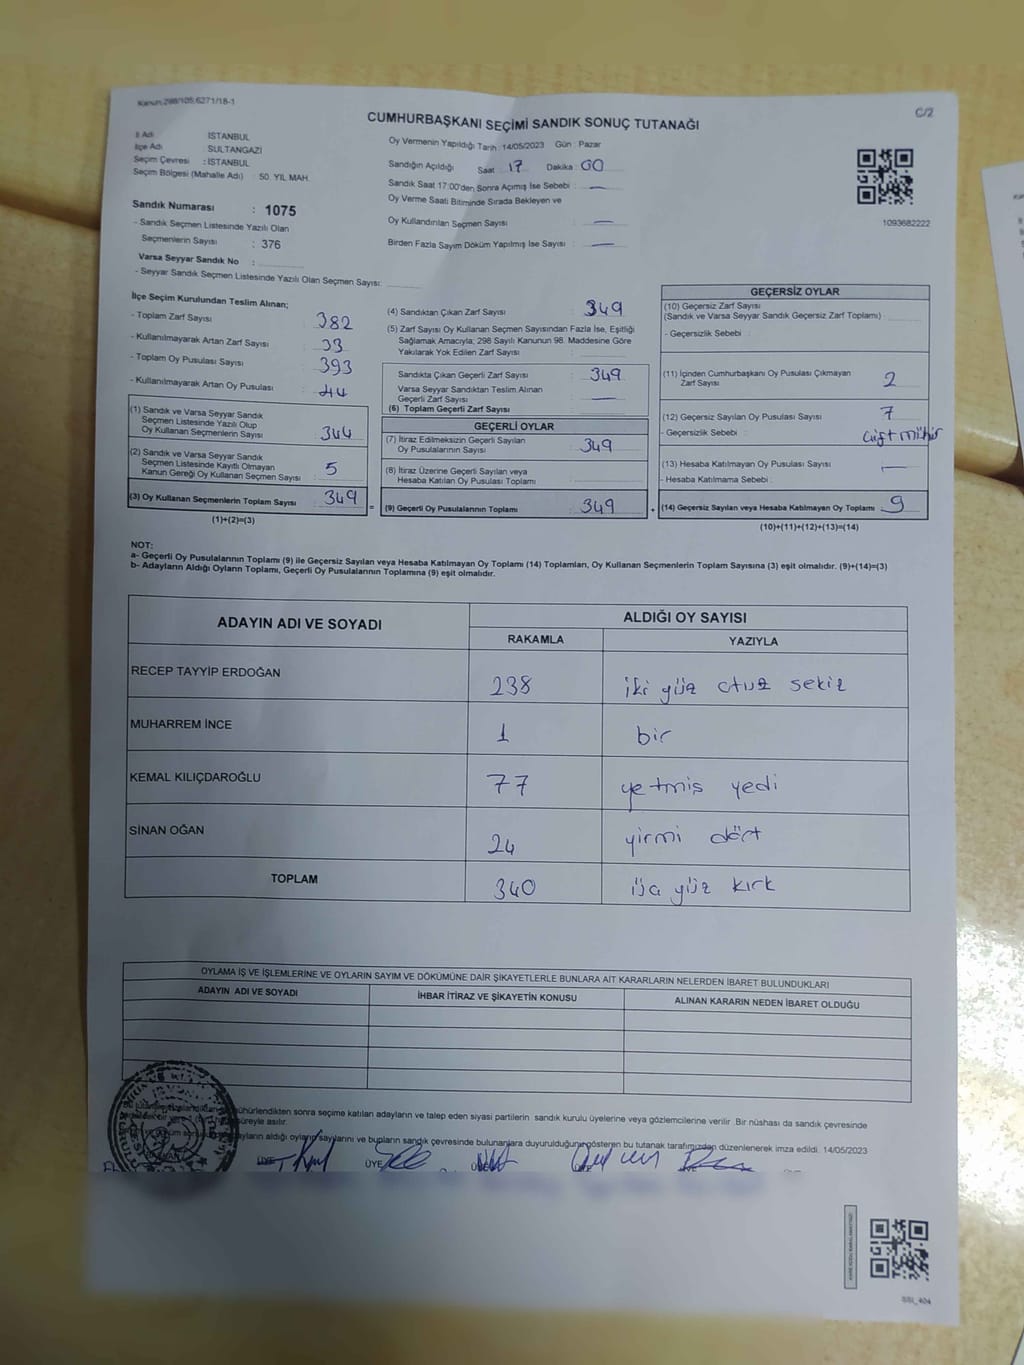 Kanun:298/105;6271/18-1
C/2
CUMHURBAŞKANI SEÇİMİ SANDIK SONUÇ TUTANAĞI
İl Adı : İSTANBUL
İlçe Adı : SULTANGAZİ
Seçim Çevresi : İSTANBUL
Seçim Bölgesi (Mahalle Adı) : 50. YIL MAH.
Oy Vermenin Yapıldığı Tarih : 14/05/2023 Gün : Pazar
Sandığın Açıldığı Saat : 17 Dakika : 00
Sandık Saat 17:00'den Sonra Açılmış İse Sebebi : —
Oy Verme Saati Bitiminde Sırada Bekleyen ve
Oy Kullandırılan Seçmen Sayısı : —
Birden Fazla Sayım Döküm Yapılmış İse Sayısı : —
1093682222
Sandık Numarası : 1075
- Sandık Seçmen Listesinde Yazılı Olan
Seçmenlerin Sayısı : 376
Varsa Seyyar Sandık No :
- Seyyar Sandık Seçmen Listesinde Yazılı Olan Seçmen Sayısı:
İlçe Seçim Kurulundan Teslim Alınan;
- Toplam Zarf Sayısı : 382
- Kullanılmayarak Artan Zarf Sayısı : 33
- Toplam Oy Pusulası Sayısı : 393
- Kullanılmayarak Artan Oy Pusulası : 44
(1) Sandık ve Varsa Seyyar Sandık
Seçmen Listesinde Yazılı Olup
Oy Kullanan Seçmenlerin Sayısı : 344
(2) Sandık ve Varsa Seyyar Sandık
Seçmen Listesinde Kayıtlı Olmayan
Kanun Gereği Oy Kullanan Seçmen Sayısı : 5
(3) Oy Kullanan Seçmenlerin Toplam Sayısı : 349
(1)+(2)=(3)
(4) Sandıktan Çıkan Zarf Sayısı : 349
(5) Zarf Sayısı Oy Kullanan Seçmen Sayısından Fazla İse, Eşitliği
Sağlamak Amacıyla; 298 Sayılı Kanunun 98. Maddesine Göre
Yakılarak Yok Edilen Zarf Sayısı :
Sandıkta Çıkan Geçerli Zarf Sayısı : 349
Varsa Seyyar Sandıktan Teslim Alınan
Geçerli Zarf Sayısı : —
(6) Toplam Geçerli Zarf Sayısı :
GEÇERLİ OYLAR
(7) İtiraz Edilmeksizin Geçerli Sayılan
Oy Pusulalarının Sayısı : 349
(8) İtiraz Üzerine Geçerli Sayılan veya
Hesaba Katılan Oy Pusulası Toplamı :
= (9) Geçerli Oy Pusulalarının Toplamı : 349
GEÇERSİZ OYLAR
(10) Geçersiz Zarf Sayısı
(Sandık ve Varsa Seyyar Sandık Geçersiz Zarf Toplamı) :
- Geçersizlik Sebebi :
(11) İçinden Cumhurbaşkanı Oy Pusulası Çıkmayan
Zarf Sayısı : 2
(12) Geçersiz Sayılan Oy Pusulası Sayısı : 7
- Geçersizlik Sebebi : çift mühür
(13) Hesaba Katılmayan Oy Pusulası Sayısı : —
- Hesaba Katılmama Sebebi :
+ (14) Geçersiz Sayılan veya Hesaba Katılmayan Oy Toplamı : 9
(10)+(11)+(12)+(13)=(14)
NOT:
a- Geçerli Oy Pusulalarının Toplamı (9) ile Geçersiz Sayılan veya Hesaba Katılmayan Oy Toplamı (14) Toplamları, Oy Kullanan Seçmenlerin Toplam Sayısına (3) eşit olmalıdır. (9)+(14)=(3)
b- Adayların Aldığı Oyların Toplamı, Geçerli Oy Pusulalarının Toplamına (9) eşit olmalıdır.
ADAYIN ADI VE SOYADI ALDIĞI OY SAYISI
RAKAMLA YAZIYLA
RECEP TAYYİP ERDOĞAN 238 iki yüz otuz sekiz
MUHARREM İNCE 1 bir
KEMAL KILIÇDAROĞLU 77 yetmiş yedi
SİNAN OĞAN 24 yirmi dört
TOPLAM 340 üç yüz kırk
OYLAMA İŞ VE İŞLEMLERİNE VE OYLARIN SAYIM VE DÖKÜMÜNE DAİR ŞİKAYETLERLE BUNLARA AİT KARARLARIN NELERDEN İBARET BULUNDUKLARI
ADAYIN ADI VE SOYADI İHBAR İTİRAZ VE ŞİKAYETİN KONUSU ALINAN KARARIN NEDEN İBARET OLDUĞU
mühürlendikten sonra seçime katılan adayların ve talep eden siyasi partilerin sandık kurulu üyelerine veya gözlemcilerine verilir. Bir nüshası da sandık çevresinde
süreyle asılır.
adayların aldığı oyların sayılarını ve bunların sandık çevresinde bulunanlara duyurulduğunu gösteren bu tutanak tarafımızdan düzenlenerek imza edildi. 14/05/2023
ÜYE ÜYE ÜYE